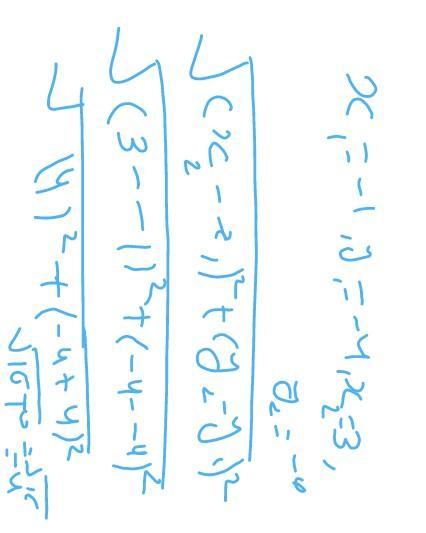 x₁ = -1, y₁ = -4, x₂ = 3,
y₂ = -4
√(x₂ - x₁)² + (y₂ - y₁)²
√(3 - -1)² + (-4 - -4)²
√(4)² + (-4 + 4)²
√16+0 = √16
= 4